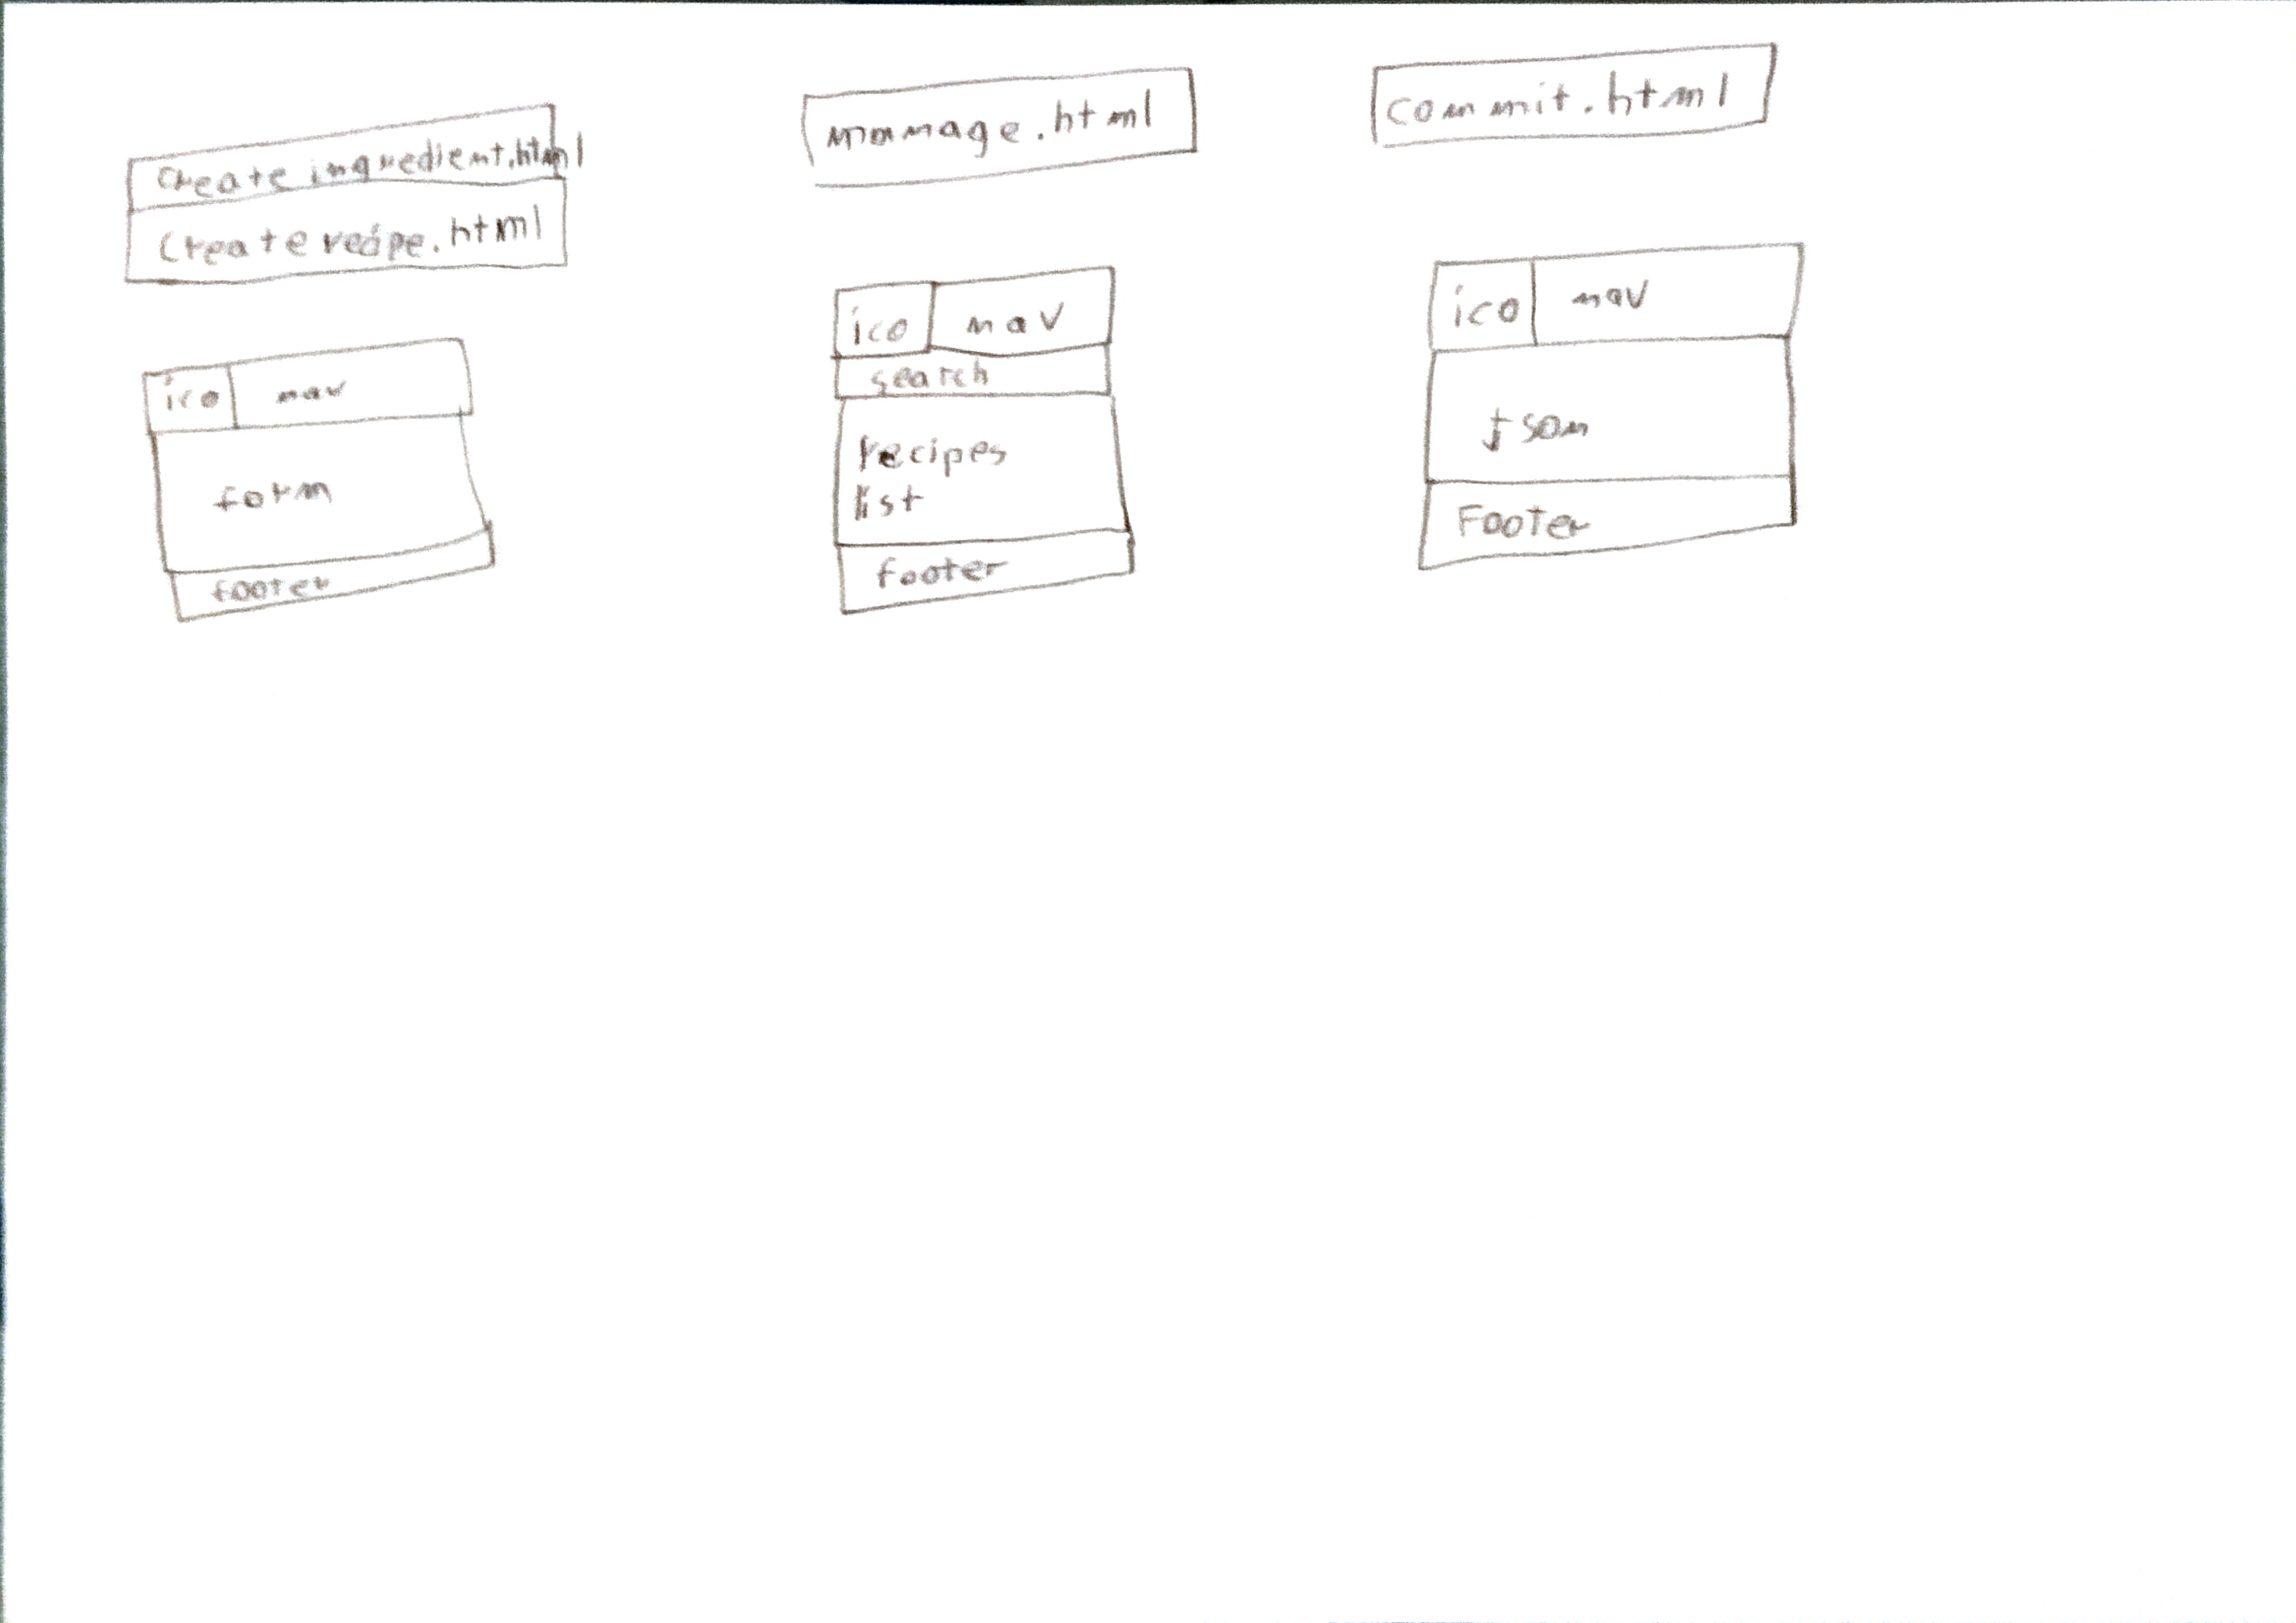 create ingredient.html
create recipe.html
ico nav
form
footer
manage.html
ico nav
search
recipes
list
footer
commit.html
ico nav
json
Footer